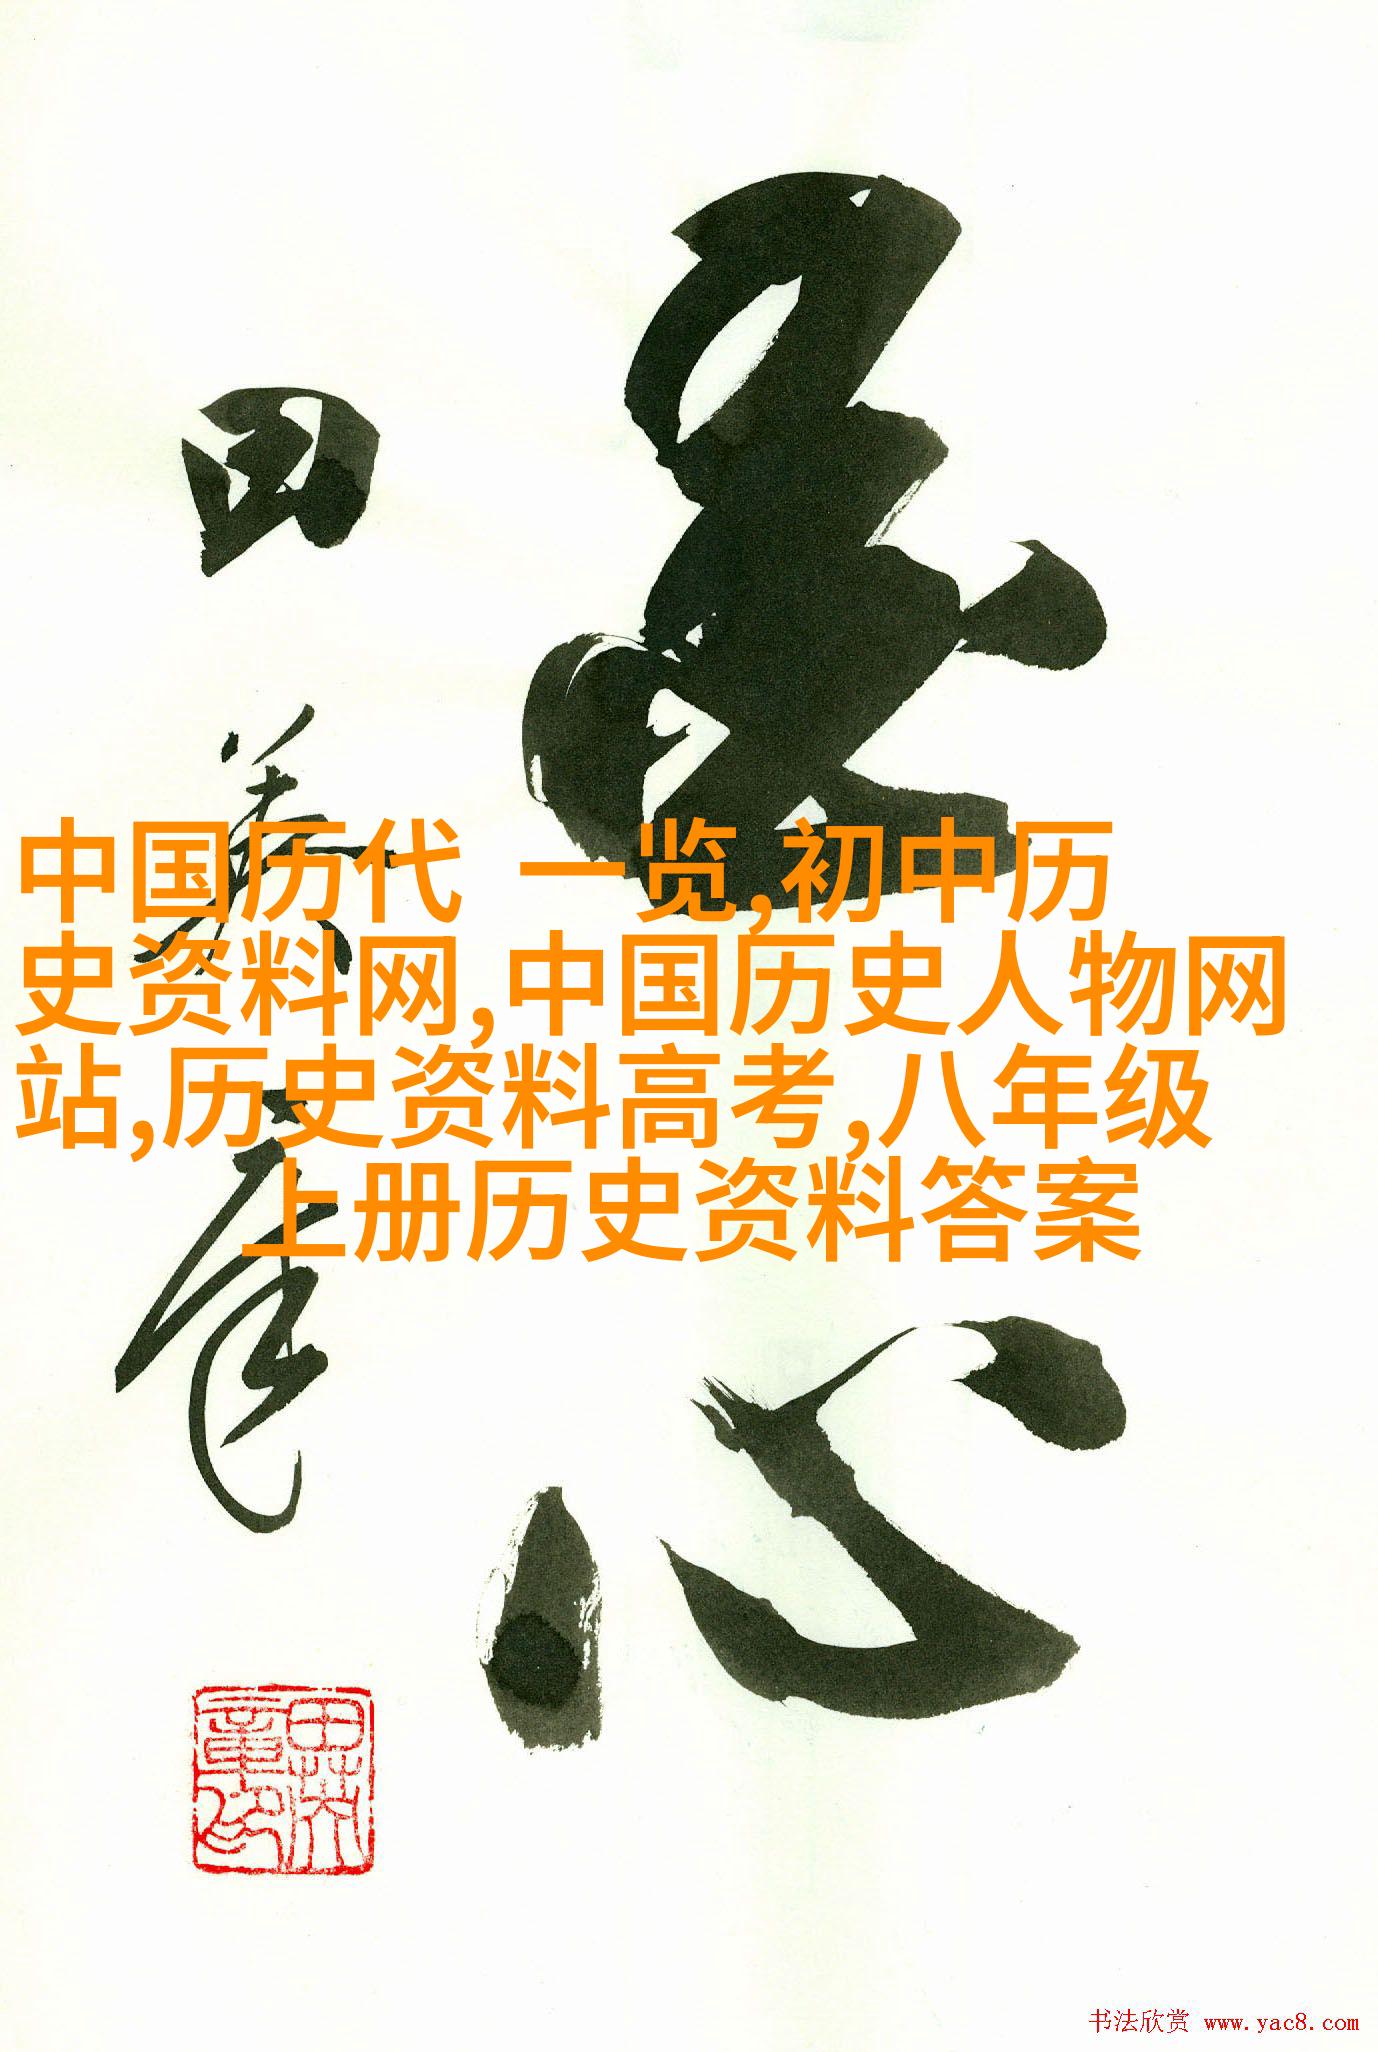 中国历代 一览,初中历
史资料网,中国历史人物网
站,历史资料高考,八年级
上册历史资料答案
心
田英章
田英章印
书法欣赏 www.yac8.com